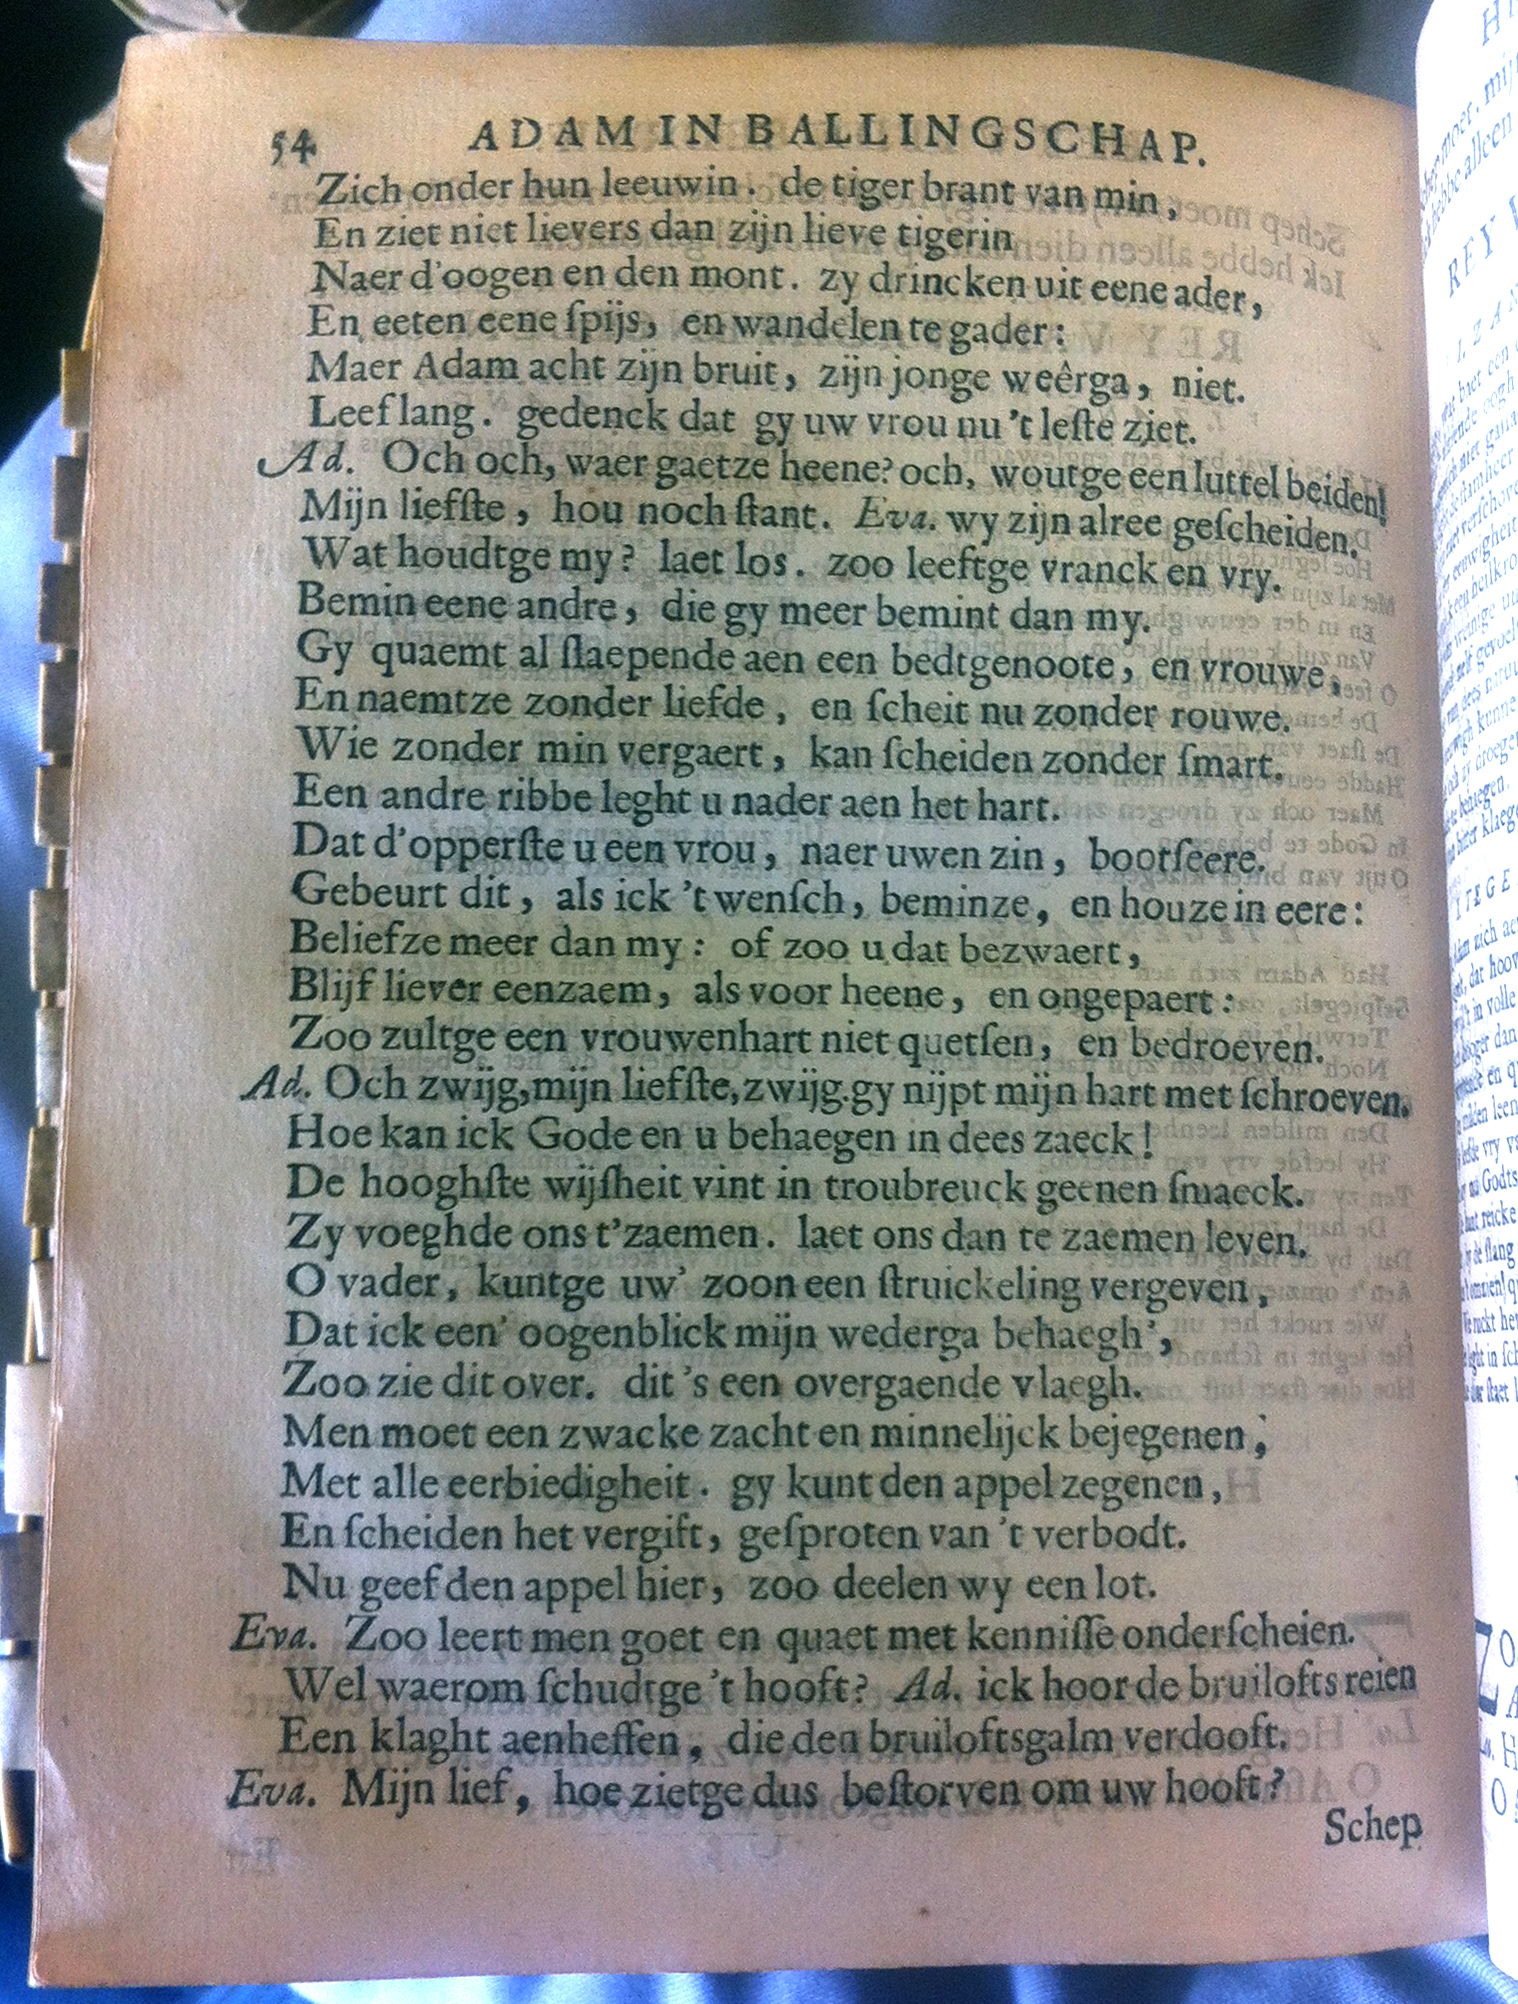 54 ADAM IN BALLINGSCHAP.
Zich onder hun leeuwin. de tiger brant van min,
En ziet niet lievers dan zijn lieve tigerin
Naer d'oogen en den mont. zy drincken uit eene ader,
En eeten eene ſpijs, en wandelen te gader:
Maer Adam acht zijn bruit, zijn jonge weêrga, niet.
Leef lang. gedenck dat gy uw vrou nu 't leſte ziet.
Ad. Och och, waer gaetze heene? och, woutge een luttel beiden!
Mijn liefſte, hou noch ſtant. Eva. wy zijn alree geſcheiden.
Wat houdtge my? laet los. zoo leeftge vranck en vry.
Bemin eene andre, die gy meer bemint dan my.
Gy quaemt al ſlaepende aen een bedtgenoote, en vrouwe,
En naemtze zonder liefde, en ſcheit nu zonder rouwe.
Wie zonder min vergaert, kan ſcheiden zonder ſmart.
Een andre ribbe leght u nader aen het hart.
Dat d'opperſte u een vrou, naer uwen zin, bootſeere.
Gebeurt dit, als ick 't wenſch, beminze, en houze in eere:
Beliefze meer dan my: of zoo u dat bezwaert,
Blijf liever eenzaem, als voor heene, en ongepaert:
Zoo zultge een vrouwenhart niet quetſen, en bedroeven.
Ad. Och zwijg, mijn liefſte, zwijg. gy nijpt mijn hart met ſchroeven.
Hoe kan ick Gode en u behaegen in dees zaeck!
De hooghſte wijſheit vint in troubreuck geenen ſmaeck.
Zy voeghde ons t'zaemen. laet ons dan te zaemen leven.
O vader, kuntge uw' zoon een ſtruickeling vergeven,
Dat ick een' oogenblick mijn wederga behaegh',
Zoo zie dit over. dit 's een overgaende vlaegh.
Men moet een zwacke zacht en minnelijck bejegenen,
Met alle eerbiedigheit. gy kunt den appel zegenen,
En ſcheiden het vergift, geſproten van 't verbodt.
Nu geef den appel hier, zoo deelen wy een lot.
Eva. Zoo leert men goet en quaet met kenniſſe onderſcheien.
Wel waerom ſchudtge 't hooft? Ad. ick hoor de bruilofts reien
Een klaght aenheffen, die den bruiloftsgalm verdooft.
Eva. Mijn lief, hoe zietge dus beſtorven om uw hooft?
Schep